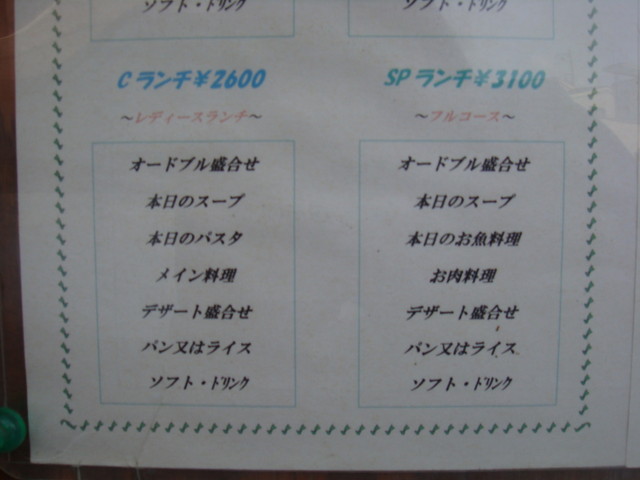 ソフト・ドリンク
ソフト・ドリンク
Cランチ¥2600
～レディースランチ～
オードブル盛合せ
本日のスープ
本日のパスタ
メイン料理
デザート盛合せ
パン又はライス
ソフト・ドリンク
SPランチ¥3100
～フルコース～
オードブル盛合せ
本日のスープ
本日のお魚料理
お肉料理
デザート盛合せ
パン又はライス
ソフト・ドリンク